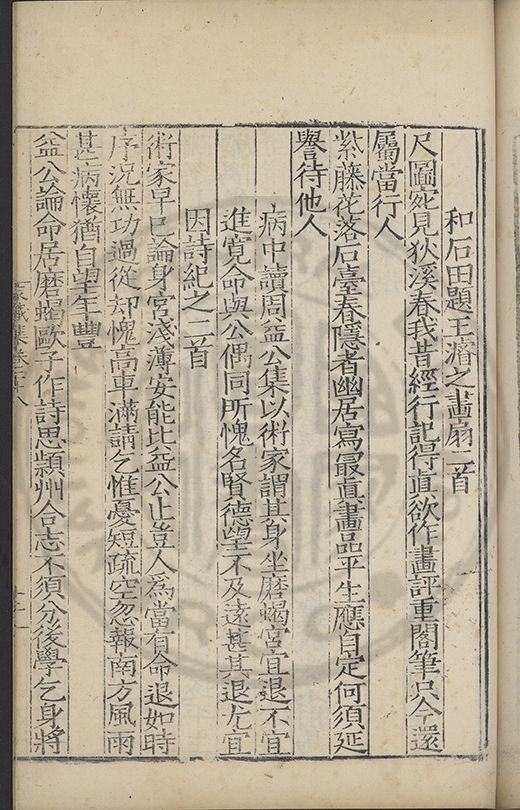 和石田題王濬之畫扇二首
尺圖宛見狄溪春我昔經行記得真欲作畫評重閣筆只今還
屬當行人
紫藤花落石臺春隱者幽居寫最真畫品平生應自定何須延
譽待他人
病中讀周益公集以術家謂其身坐磨蝎宮宜退不宜
進寬命與公偶同所愧名賢德望不及遠甚其退尤宜
因詩紀之二首
術家早已論身宮淺薄安能比益公止豈人為當有命退如時
序況無功過從却愧高車滿請乞惟憂短疏空忽報南方風雨
甚病懷猶自望年豐
益公論命居磨蝎歐子作詩思潁州合志不須分後學乞身將
家藏集卷二十八